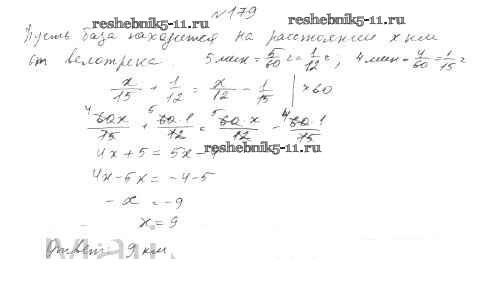 reshebnik5-11.ru
№179
Пусть база находится на расстоянии x км
от велотрека. 5 мин = 5/60 ч = 1/12 ч; 4 мин = 4/60 = 1/15 ч
x/15 + 1/12 = x/12 - 1/15 | x60
4 60x/15 + 5 60·1/12 = 5 60·x/12 - 4 60·1/15
4x + 5 = 5x - 4
reshebnik5-11.ru
4x - 5x = -4 - 5
- x = -9
x = 9
Ответ: 9 км.